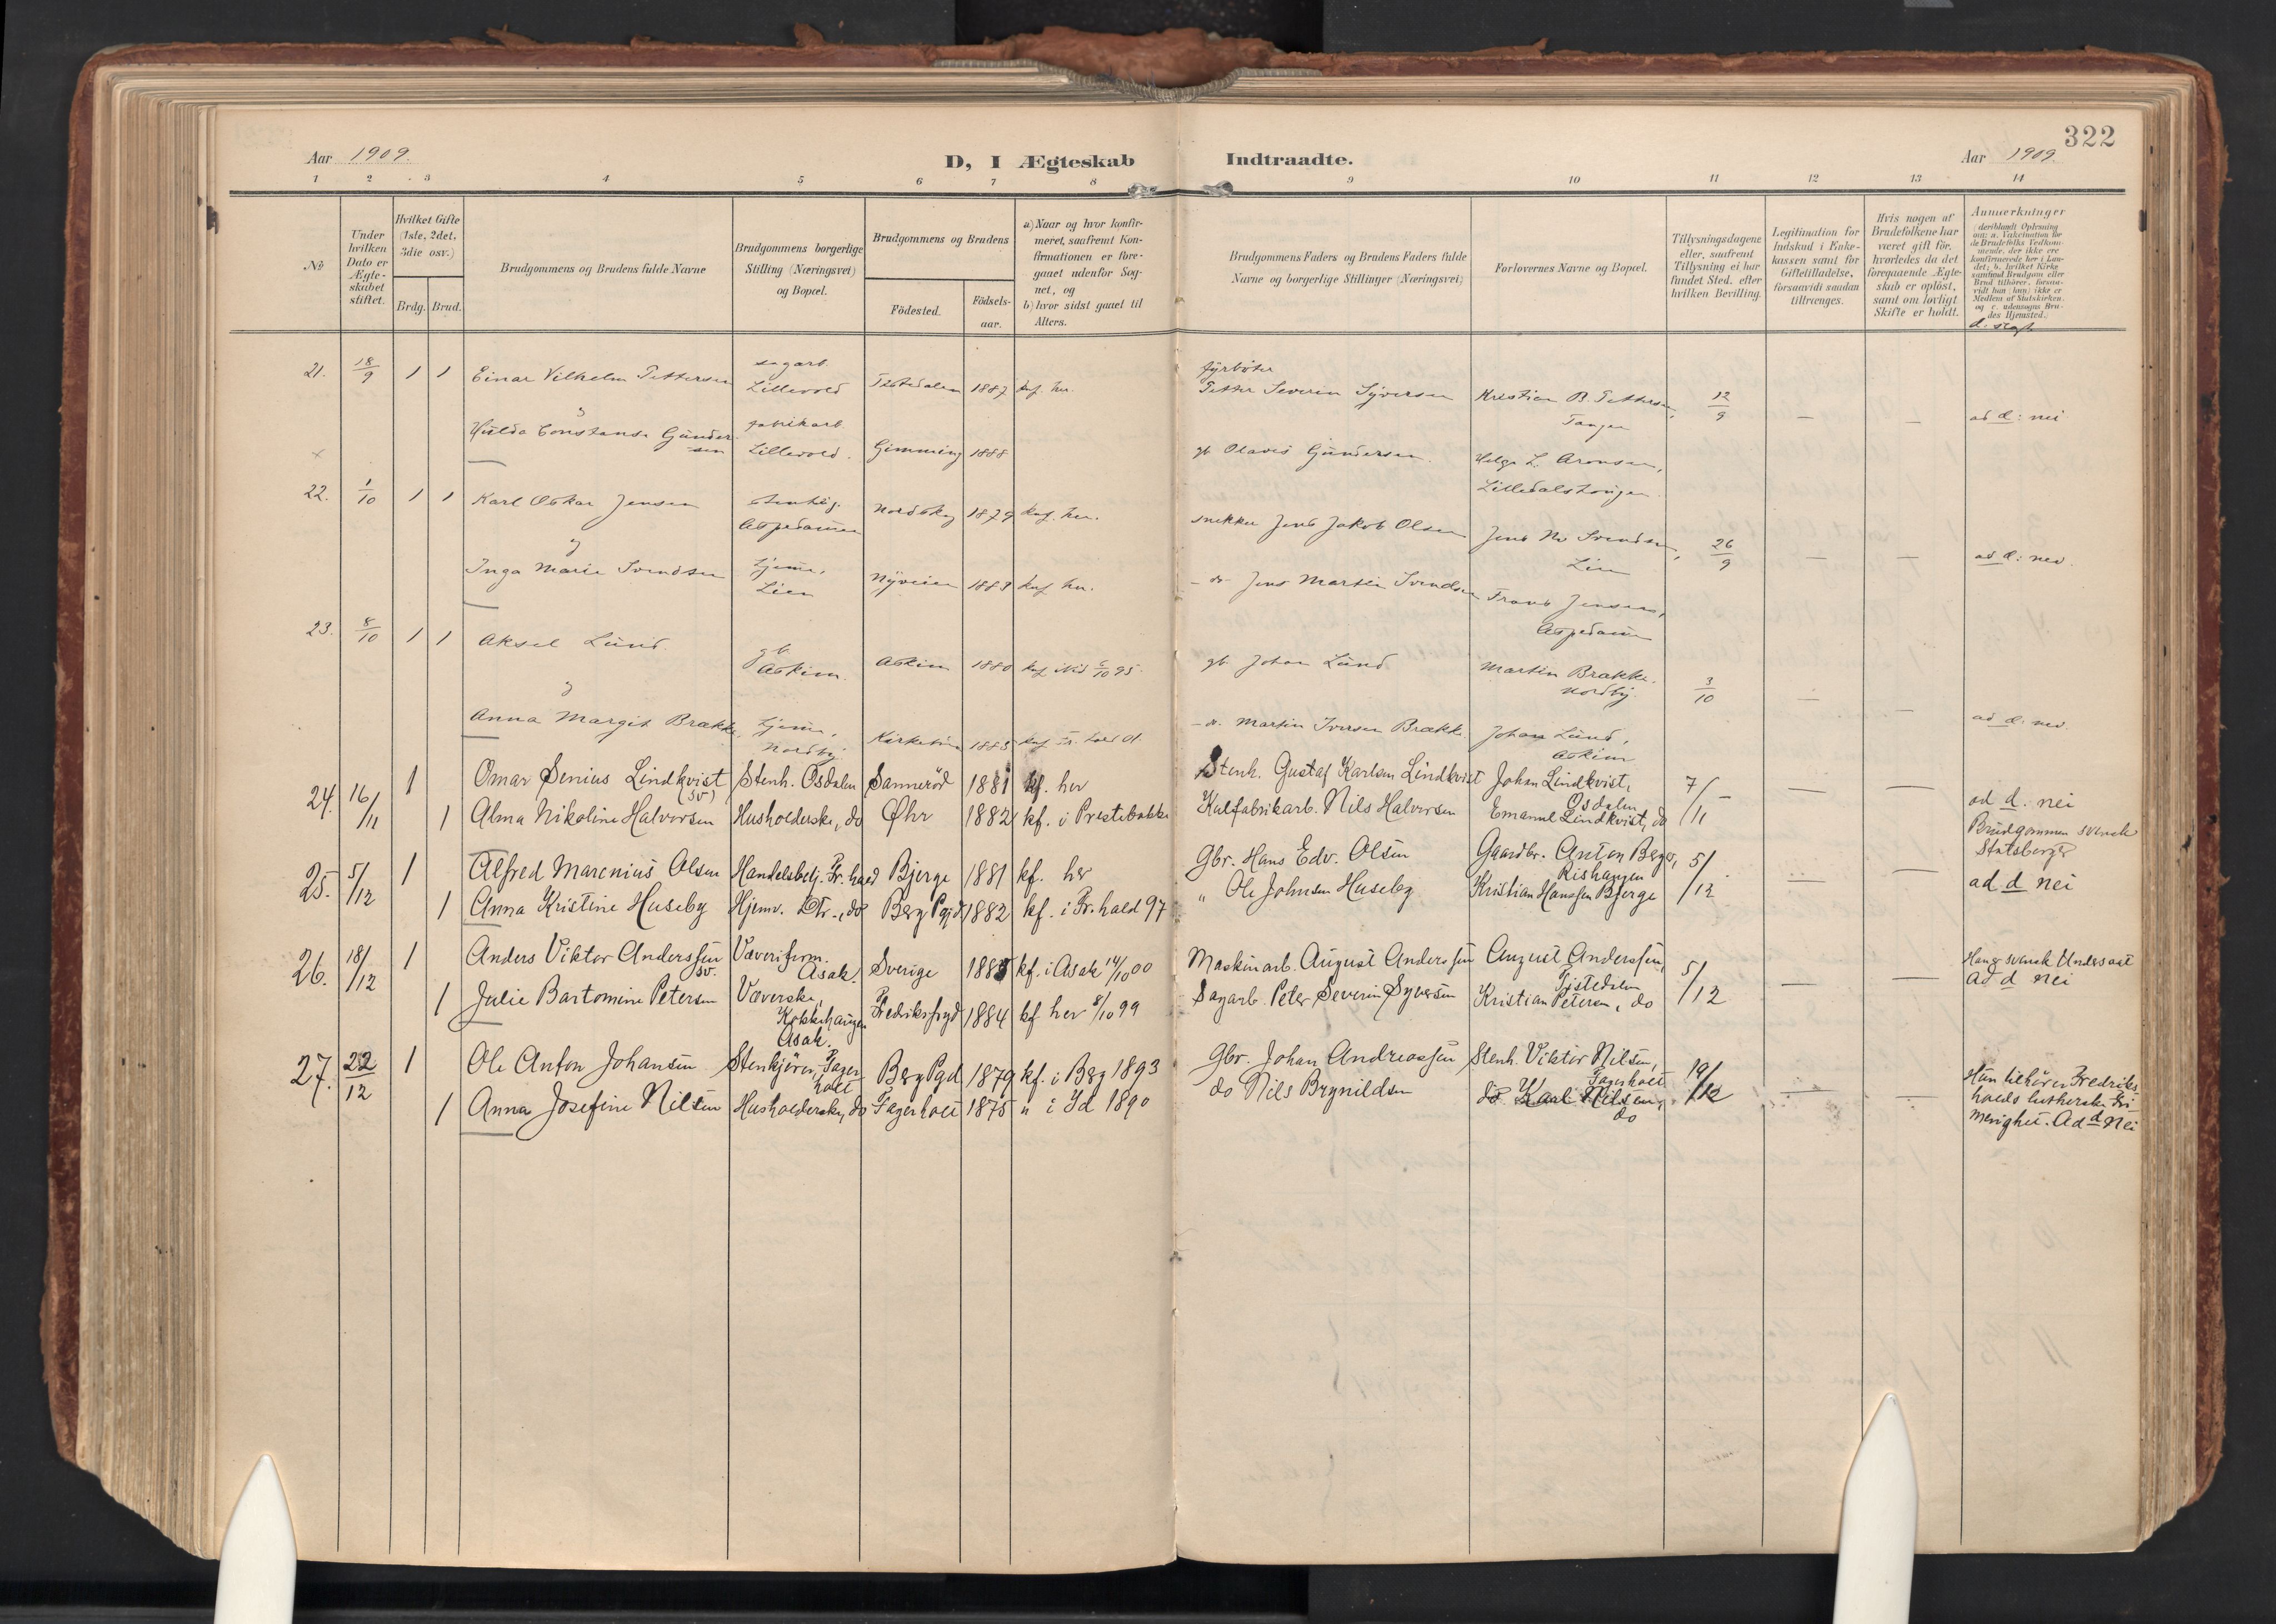 322
Aar 1909.
D, I Ægteskab Indtraadte.
Aar 1909
1 2 3 4 5 6 7 8 9 10 11 12 13 14
No
Under hvilken Dato er Ægteskabet stiftet.
Hvilket Gifte (1ste, 2det, 3die osv.)
Brdg. Brud.
Brudgommens og Brudens fulde Navne
Brudgommens borgerlige Stilling (Næringsvei) og Bopæl.
Brudgommens og Brudens
Fødested.
Fødselsaar.
a) Naar og hvor konfirmeret, saafremt Konfirmationen er foregaaet udenfor Sognet, og
b) hvor sidst gaaet til Alters.
Brudgommens Faders og Brudens Faders fulde Navne og borgerlige Stillinger (Næringsvei)
Forlovernes Navne og Bopæl.
Tillysningsdagene eller, saafremt Tillysning ei har fundet Sted, efter hvilken Bevilling.
Legitimation for Indskud i Enkekassen samt for Giftetilladelse, forsaavidt saadan tiltrænges.
Hvis nogen af Brudefolkene har været gift før, hvorledes da det foregaaende Ægteskab er opløst, samt om lovligt Skifte er holdt.
Anmærkninger (deriblandt Oplysning om: a. Vakcination for de Brudefolks Vedkommende, der ikke ere konfirmerede her i Landet; b. hvilket Kirkesamfund Brudgom eller Brud tilhører, forsaavidt han (hun) ikke er Medlem af Statskirken, og c. udensogns Brudes Hjemsted.)
d. slegt
21. 18/9 1 1 Einar Vilhelm Pettersen sagarb. Lillevold Tistedalen 1887 knf. her. fyrbøter Petter Severin Syversen Kristian B. Pettersen, Tangen 12/9 — — ad d: nei
g
Hulda Constanse Gundersen fabrikarb. Lillevold. Gimming 1888 gb Olavis Gundersen. Helge L. Aronsen, Lilledalshougen
22. 1/10 1 1 Karl Oskar Jensen stenhg. Aspedamen Nordskog 1879 knf. her. snekker Jens Jakob Olsen Jens M. Svendsen, Lien 26/9 — — ad d: nei.
g
Inga Marie Svendsen hjeme, Lien Nyveien 1883 knf her. - do - Jens Martin Svendsen Frans Jensen, Aspedamen
23. 8/10 1 1 Aksel Lund. gb. Askim. Askim 1880 gb Johan Lund Martin Brække, Nordby. 3/10 — — ad d: nei.
g
Anna Margit Brække, hjeme, Nordby Kirkebøen 1885 - do. Martin Iversen Brække Johan Lund, Askim
24. 16/11 1 Omar Senius Lindkvist (sv) Stenh. Osdalen Sannerød 1881 kf. her Stenh. Gustaf Karlsen Lindkvist Johan Lindkvist, Osdalen 7/11 — — ad d. nei
1 Alma Nikoline Halvorsen Husholderske, do Øhr 1882 kf. i Prestebakke Kalfabrikarb. Nils Halvorsen Emanuel Lindkvist, do Brudgommen svensk Statsborger
25. 5/12 1 Alfred Marenius Olsen Handelsbetj. Fr.hald Bjerge 1881 kf. her Gbr. Hans Edv. Olsen Gaardbr. Anton Berger, Rishaugen 5/12 — — ad d nei
1 Anna Kristine Huseby Hjemv. Dtr., do Berg Pgjd 1882 kf. i Fr.hald 97 " Ole Johnsen Huseby Kristian Hanssen Bjerge
26. 18/12 1 Anders Viktor Anderssen sv. Væveriform. Asak. Sverige 1885 kf. i Asak 14/10 00 Maskinarb. August Anderssen August Anderssen, Tistedalen 5/12 — — Han er svensk Undersaat Ad d nei
1 Julie Bartomine Petersen Væverske, Kokkehaugen Asak. Fredriksfryd 1884 kf her 8/10 99 Sagarb. Peter Severin Syversen Kristian Petersen, do
27. 22/12 1 Ole Anton Johansen Stenkjører, Fagerholt Berg Pgd 1879 kf. i Berg 1893 Gbr. Johan Andreassen Stenh. Viktor Nilsen, Fagerholt 19/12 — — Hun tilhører Fredrikshalds lutherske Frimenighet. Ad d nei
1 Anna Josefine Nilsen Husholderske, do Fagerholt 1875 " i Id 1890 do Nils Brynildsen do Karl Nilsen, do